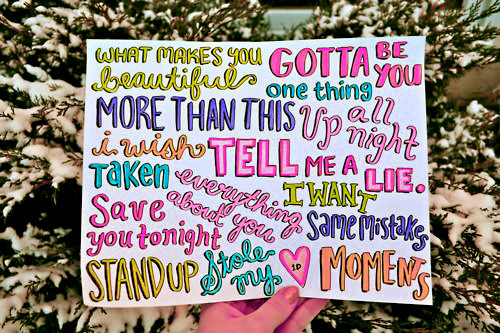 WHAT MAKES YOU
beautiful
GOTTA BE
YOU
one thing
MORE THAN THIS
Up all
night
i wish
TELL ME A
LIE.
Taken
everything
about you
I WANT
Save
you tonight
Same Mistakes
STAND UP
Stole
my
1D
MOMENTS